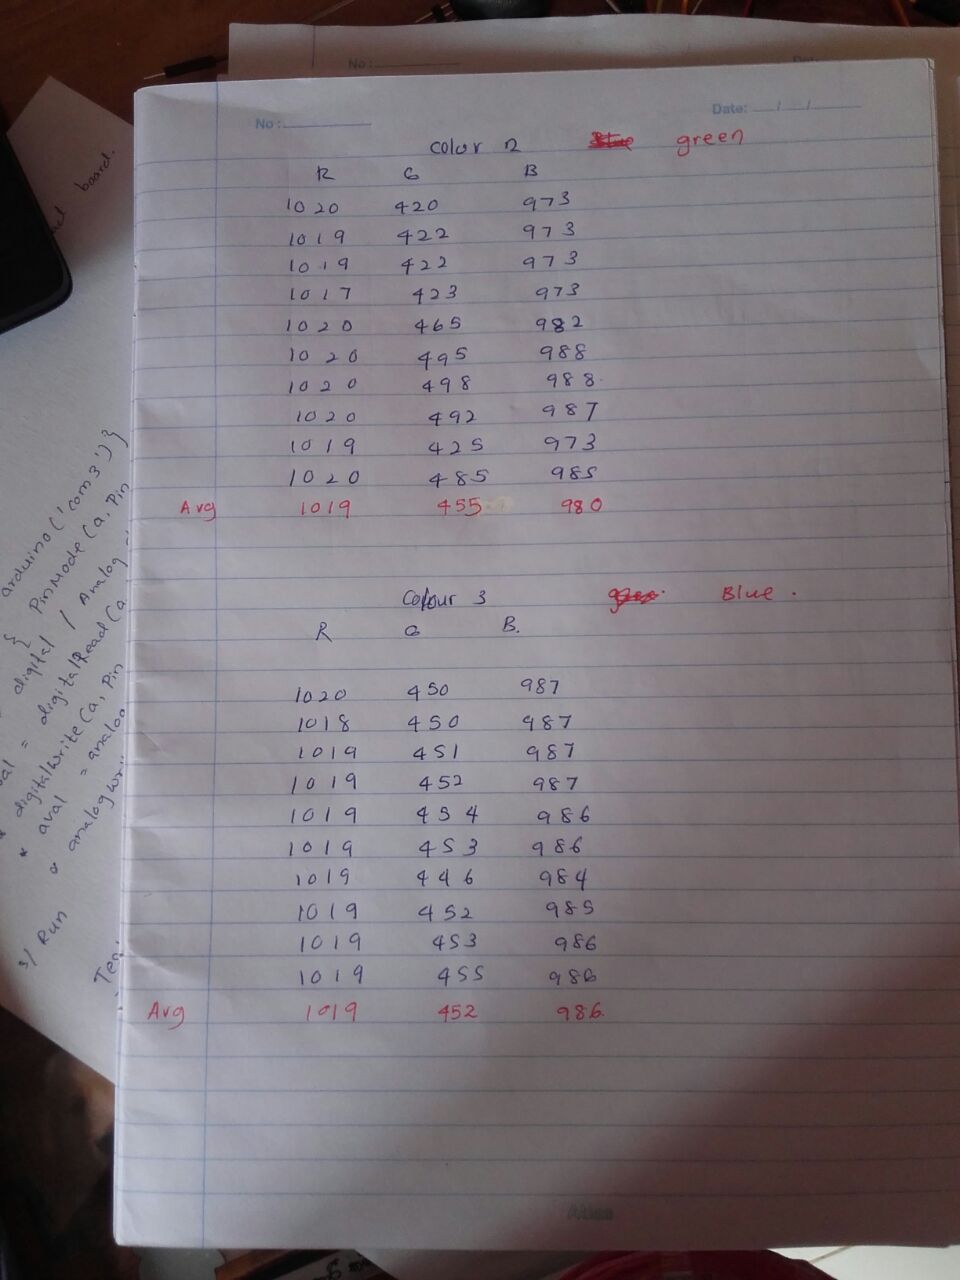 No:
No:
Date:
Color 2 green
R G B
1020 420 973
1019 422 973
1019 422 973
1017 423 973
1020 465 982
1020 495 988
1020 498 988.
1020 492 987
1019 425 973
1020 485 985
Avg 1019 455 980
Colour 3 Blue.
R G B.
1020 450 987
1018 450 987
1019 451 987
1019 452 987
1019 454 986
1019 453 986
1019 446 984
1019 452 985
1019 453 986
1019 455 986
Avg 1019 452 986.
Atlas
board.
arduino('com3')}
{ PinMode(a, Pin
digital / Analog
= digitalRead(a
* digitalWrite(a, Pin
* aval = analog
analogwri
3) Run